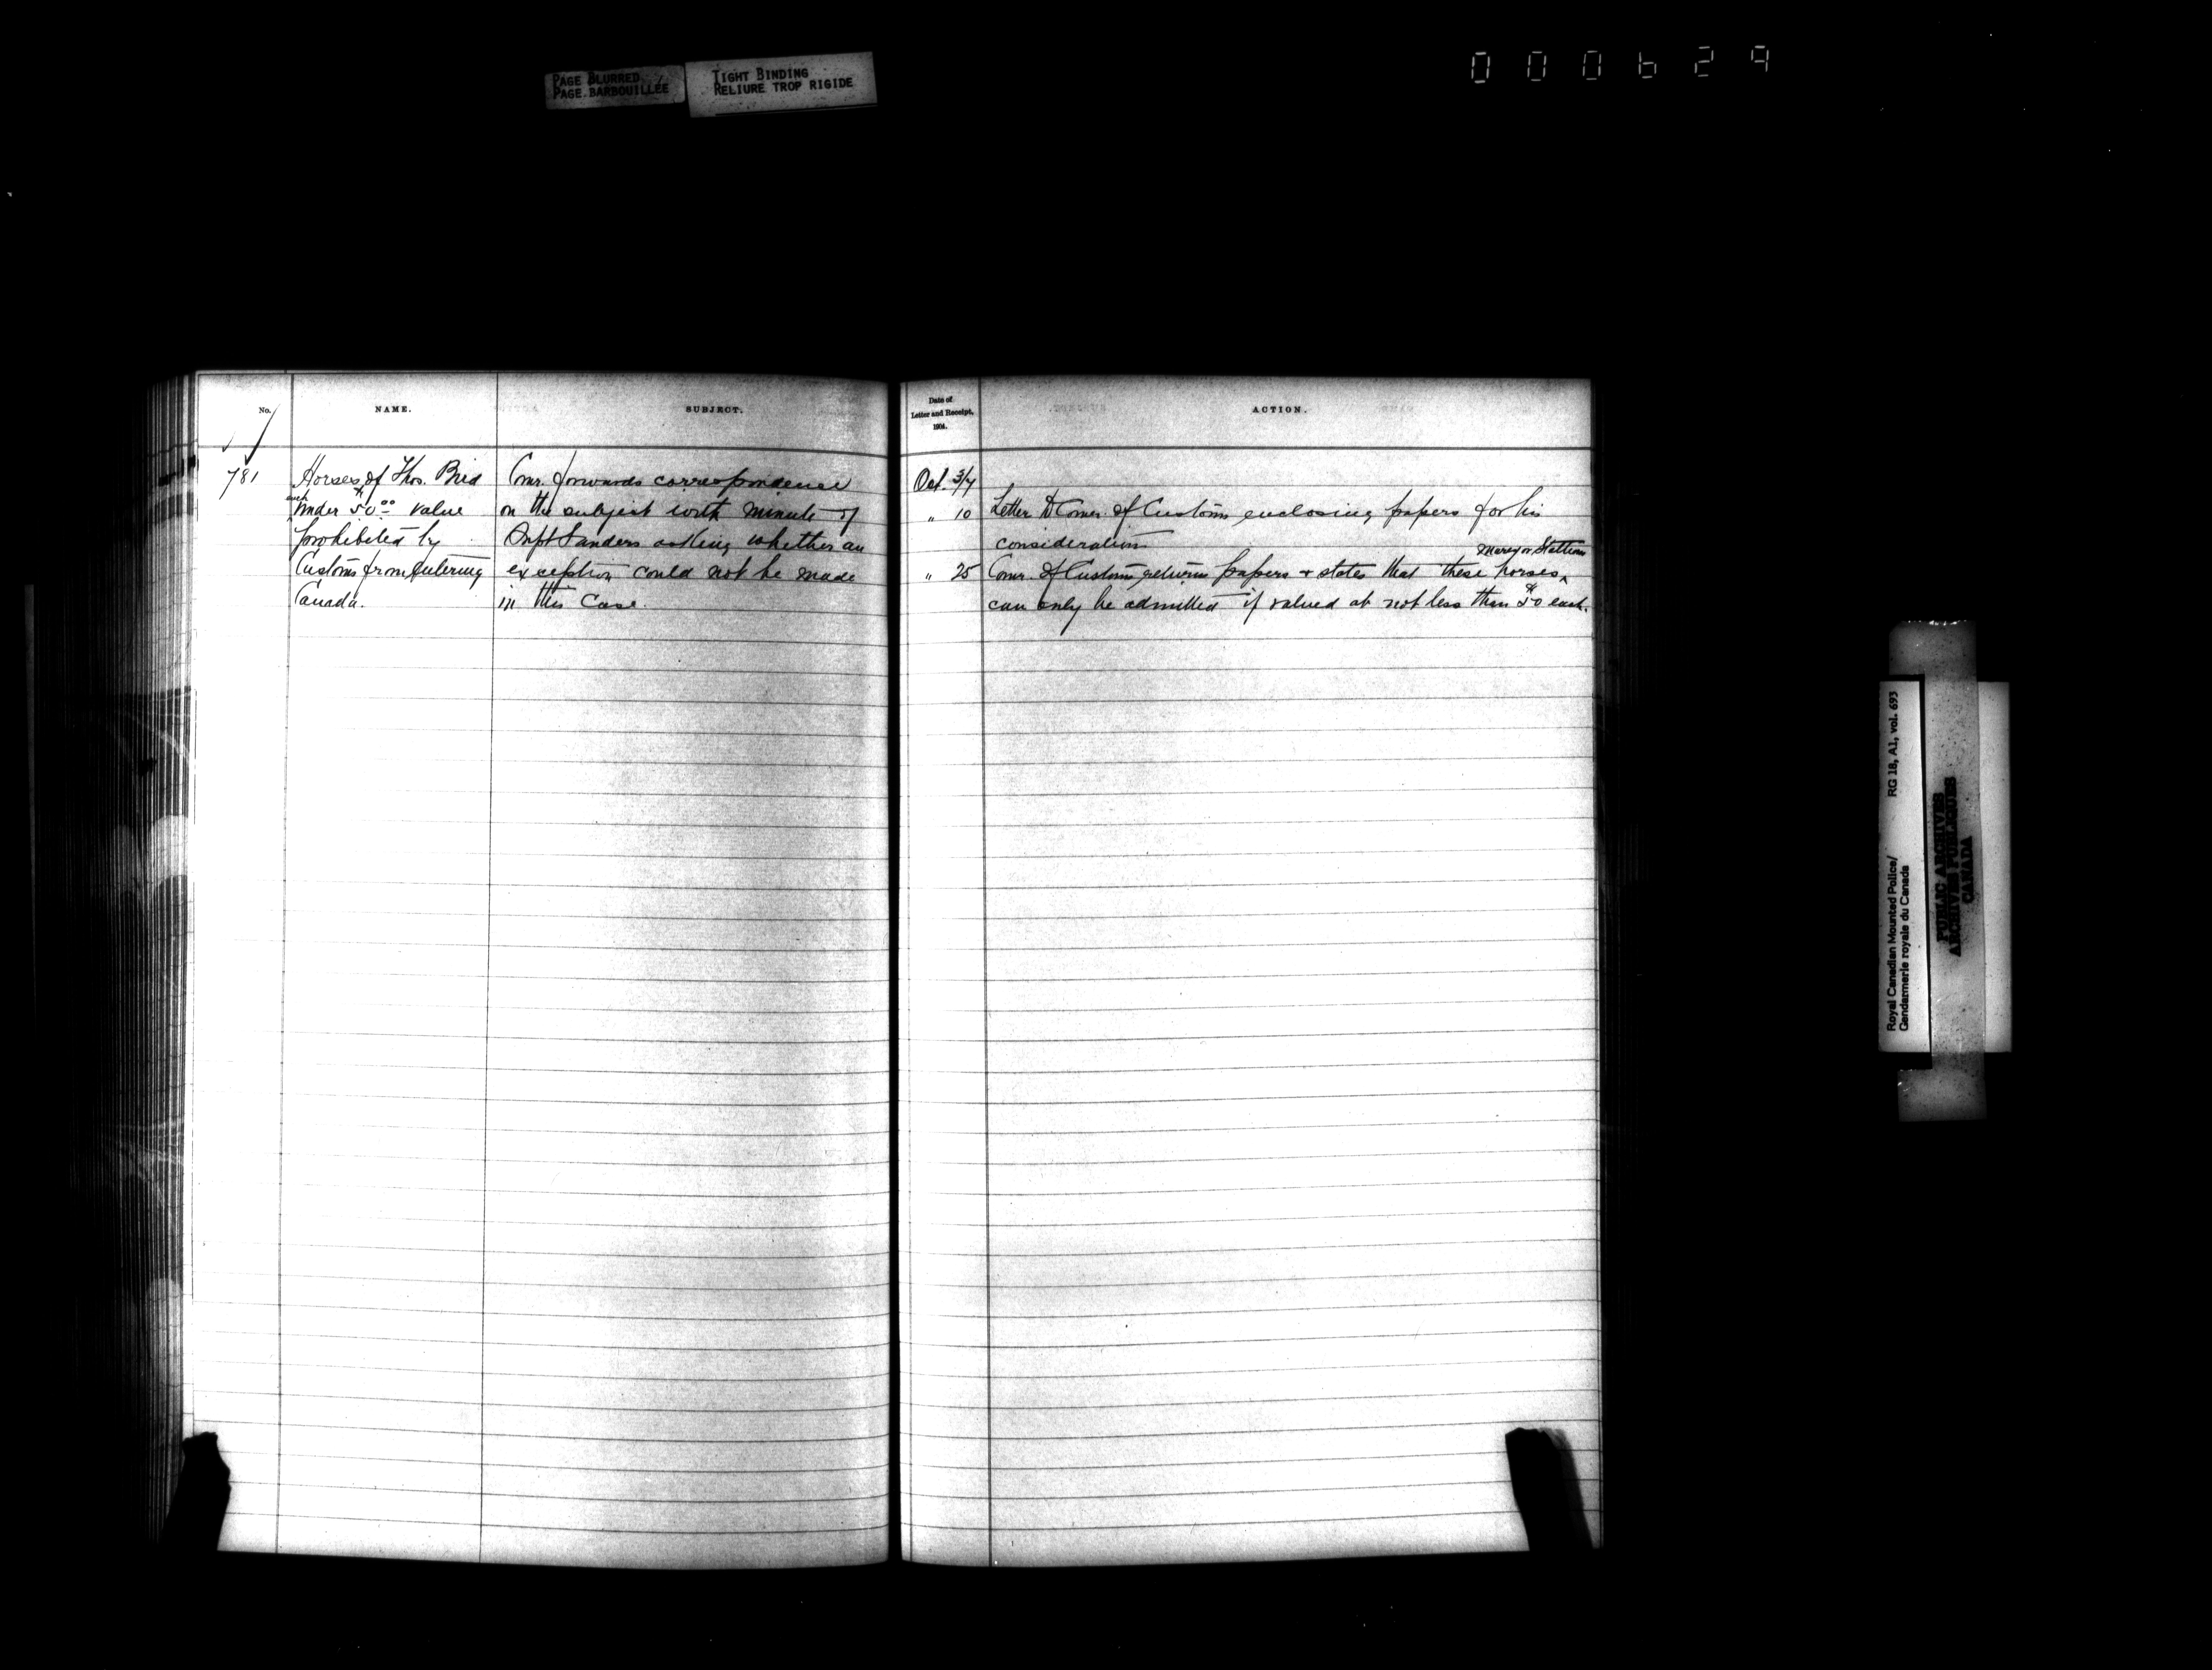 PAGE BLURRED
PAGE BARBOUILLÉE
TIGHT BINDING
RELIURE TROP RIGIDE
000629
No.
NAME.
SUBJECT.
781
Horses of Thos. Bird
each under $50.00 value
prohibited by
Customs from Entering
Canada.
Comr. forwards correspondence
on the subject with minute of
Supt Sanders asking whether an
exception could not be made
in this Case.
Date of
Letter and Receipt,
1904.
ACTION.
Oct. 3/7
" 10 Letter to Comr. of Customs enclosing papers for his
consideration
" 25 Comr. of Customs returns papers + states that these horses, mares or Stallions
can only be admitted if valued at not less than $50 each.
Royal Canadian Mounted Police/
Gendarmerie royale du Canada
RG 18, A1, vol. 693
PUBLIC ARCHIVES
ARCHIVES PUBLIQUES
CANADA